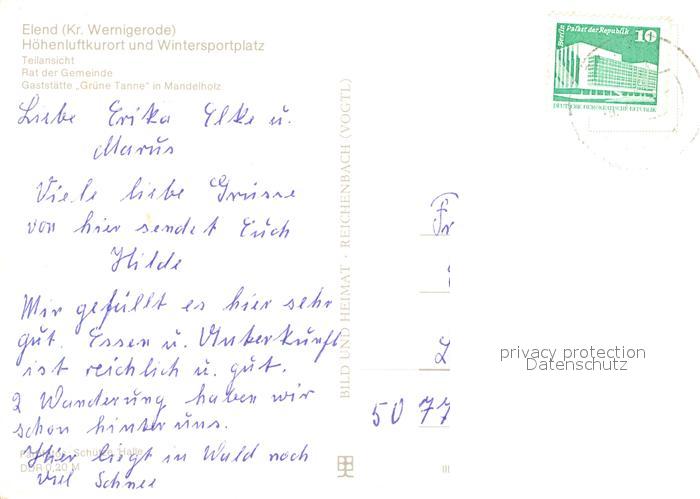 Elend (Kr. Wernigerode)
Höhenluftkurort und Wintersportplatz
Teilansicht
Rat der Gemeinde
Gaststätte „Grüne Tanne" in Mandelholz
Liebe Erika Elke u.
Marus
Viele liebe Grüsse
von hier sendet Euch
Hilde
Mir gefällt es hier sehr
gut. Essen u. Unterkunft
ist reichlich u. gut.
2 Wanderung haben wir
schon hinter uns.
Hier liegt in Wald noch
viel Schnee
Schütze, Halle
DDR 0,20 M
BILD UND HEIMAT · REICHENBACH (VOGTL)
Berlin Palast der Republik
10
DEUTSCHE DEMOKRATISCHE REPUBLIK
Fr
L
50 77
privacy protection
Datenschutz